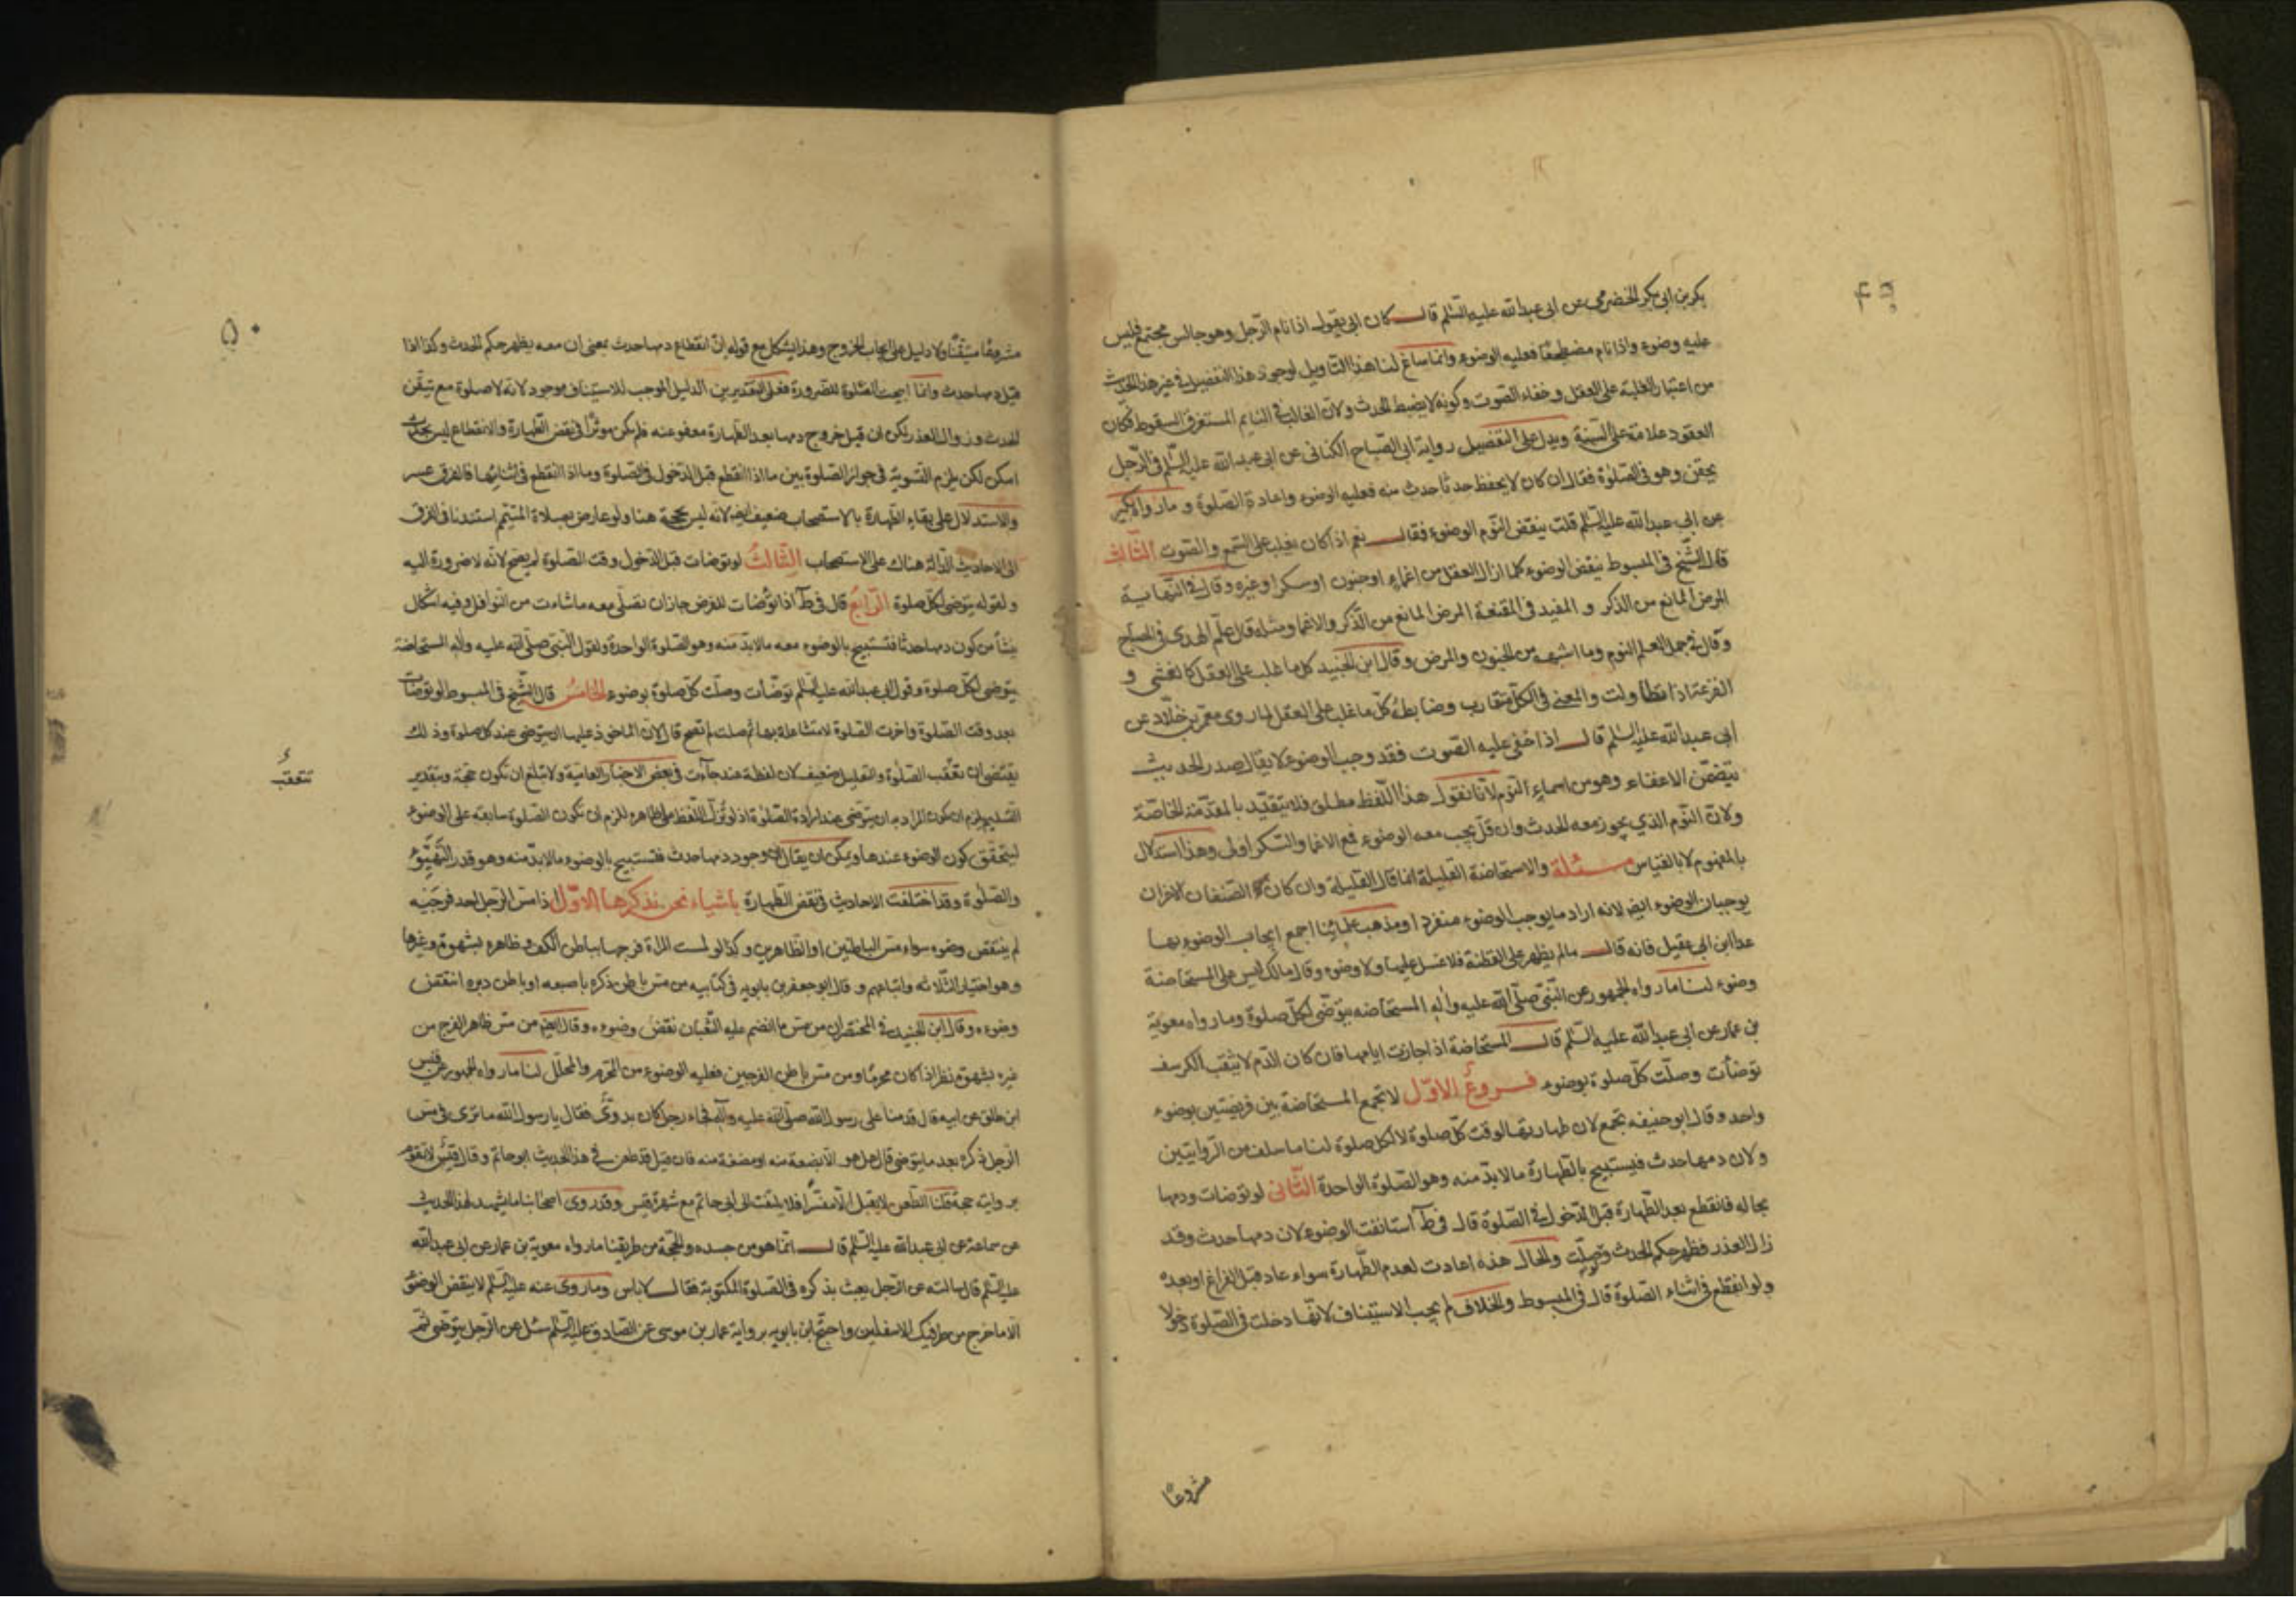 ۴۹
بكر بن ابى بكر الحضرمى عن ابى عبدالله عليه السّلم قال كان ابى يقول اذا نام الرّجل وهو جالس مجتمع فليس
عليه وضوء واذا نام مضطجعًا فعليه الوضوء وانما ساغ لنا هذا التاويل لوجود هذا التفصيل فى غير هذا الحدث
من اعتبار الغلبة على العقل وخفاء الصوت وكونه لا يضبط الحدث ولان الغالب فى النايم المستغرق السقوط فكان
العقود علامة على السّنة ويدل على التفصيل رواية ابى الصّباح الكنانى عن ابى عبدالله عليه السّلم فى الرّجل
يخفق وهو فى الصّلوة فقال ان كان لا يحفظ حدثا حدث منه فعليه الوضوء واعادة الصّلوة وما رواه بكير
عن ابى عبدالله عليه السّلم قلت ينقض النّوم الوضوء فقال نعم اذا كان يغلب على السّمع والصّوت الثّالث
قال الشّيخ فى المبسوط ينقض الوضوء كلما ازال العقل من اغماءٍ او جنون او سكر او غيره وقال فى النّهاية
المرض المانع من الذكر و المفيد فى المقنعة المرض المانع من الذّكر والاغما ومثله قال علم الهدى فى المصباح
وقال فى جمل العلم النوم وما اشبهه من الجنون والمرض وقال ابن الجنيد كل ما غلب على العقل كالغشى و
الفزعة اذا تطاولت والمعنى فى الكلّ متقارب وضابطهُ كلّ ما غلب على العقل لما روى معمر بن خلّاد عن
ابى عبدالله عليه السّلم قال اذا خفى عليه الصّوت فقد وجب الوضوء لا يقال صدر الحديث
يتضمّن الاغفاء وهو من اسماءِ النّوم لانا نقول هذا اللّفظ مطلق فلا يتقيّد بالمقدّمة الخاصّة
ولانّ النّوم الذى يجوز معه الحدث وان قلّ يجب معه الوضوء فمع الاغما والسّكر اولى وهذا استدلال
بالمفهوم لا بالقياس مسئلة والاستحاضة القليلة انما قال القليلة وان كان الصّنفان الاخران
يوجبان الوضوء ايض لانه اراد ما يوجب الوضوء منفردا ومذهب علمائنا اجمع ايجاب الوضوء بها
عدا ابن ابى عقيل فانه قال ما لم يظهر على القطنة فلا غسل عليها ولا وضوء وقال مالك ليس على المستحاضة
وضوء لنا ما رواه الجمهور عن النّبىّ صلّى الله عليه واله المستحاضه تتوضّى لكلّ صلوة وما رواه معوية
بن عمار عن ابى عبدالله عليه السّلم قال المستحاضة اذا جازت ايامها فان كان الدّم لا يثقب الكرسف
توضأت وصلّت كلّ صلوة بوضوء فروعٌ الاوّل لا تجمع المستحاضة بين فريضتين بوضوء
واحد وقال ابو حنيفه تجمع لان طهارتها لوقت كلّ صلوة لا لكل صلوة لنا ما سلف من الرّوايتين
ولان دمها حدث فيستبيح بالطّهارة ما لا بدّ منه وهو الصّلوة الواحدة الثّانى لو توضات ودمها
بحاله فانقطع بعد الطّهارة قبل الدّخول فى الصّلوة قال فى ط استانفت الوضوء لان دمها حدث وقد
زال العذر فظهر حكم الحدث ولو صلّت والحال هذه اعادت لعدم الطّهارة سواء عاد قبل الفراغ او بعده
ولو انقطع فى اثناء الصّلوة قال فى المبسوط والخلاف لم يجب الاستيناف لانّها دخلت فى الصّلوة دخولا
مشروعًا
۵۰
مشروعًا متيقّنًا ولا دليل على ايجاب الخروج وهذا يشكل مع قوله انّ انقطاع دمها حدث بمعنى ان معه يظهر حكم الحدث وكذا اذا
قيل دمها حدث وانما ابيحت الصّلوة للضرورة فعلى التّقديرين الدليل الموجب للاستيناف موجود لانه لا صلوة مع تيقّن
الحدث وزوال العذر لكن ان قيل خروج دمها بعد الطّهارة معفو عنه فلم يكن موثّرا فى نقض الطّهارة والانقطاع ليس بحدث
امكن لكن يلزم التّسوية فى جواز الصّلوة بين ما اذا انقطع قبل الدّخول فى الصّلوة وما اذا انقطع فى اثنائها فالفرق عسر
والاستدلال على بقاءِ الطّهارة بالاستصحاب ضعيف ايض لانه ليس بحجّة هنا ولو عارض بصلاة المتيمّم استندنا فى الفرق
الى الاحاديث الدّالة هناك على الاستصحاب الثّالثُ لو توضات قبل الدّخول وقت الصّلوة لم يصح لانّه لا ضرورة اليه
ولقوله يتوضى لكلّ صلوة الرّابعُ قال فى ط اذا توضّات للفرض جاز ان تصلّى معه ما شاءت من النّوافل وفيه اشكال
ينشأ من كون دمها حدثا فتستبيح بالوضوء معه ما لا بدّ منه وهو الصّلوة الواحدة ولقول النّبى صلّى الله عليه واله المستحاضة
يتوضى لكلّ صلوة وقول ابى عبدالله عليه السّلم توضّأت وصلّت كلّ صلوة بوضوءٍ الخامسُ قال الشّيخ فى المبسوط لو توضّات
بعد وقت الصّلوة واخرت الصّلوة لا متشاغلة بها ثم صلّت لم تصح قال لانّ الماخوذ عليها ان يتوضى عند كلّ صلوة وذلك
يقتضى ان تعقّب الصّلوة والتعليل ضعيف لان لفظة عند جاءت فى بعض الاخبار العامية ولا تبلغ ان تكون حجّة وبتقدير
التسليم يلزم ان يكون المراد به ان يتوضّى عند ارادة الصّلوة اذ لو نزّل اللّفظ على ظاهره للزم ان تكون الصّلوة سابقة على الوضوء
تتعقّبُ
ليتحقّق كون الوضوء عندها ويمكن ان يقال انّ وجود دمها حدث فتستبيح بالوضوء ما لا بدّ منه وهو قدر التّهيّؤ
والصّلوة وقد اختلفت الاحاديث فى نقض الطّهارة باشياء نحن نذكرها الاوّل اذا مسّ الرّجل احد فرجَيه
لم ينتقض وضوءه سواء مسّ الباطنين او الظاهرين وكذا لو لمست المراة فرجها بباطن الكف وظاهره بشهوة وغيرها
وهو اختيار الثّلاثه واتباعهم وقال ابو جعفر بن بابويه فى كتابيه من مسّ باطن ذكره باصبعه او باطن دبره انتقض
وضوءه وقال ابن الجنيد فى المختصر ان من مسّ ما انضم عليه الثّقبان نقض وضوءه وقال ايض من مسّ ظاهر الفرج من
غيره بشهوة نظر اذا كان محرمًا ومن مسّ باطن الفرجين فعليه الوضوء من المحّرم والمحلّل لنا ما رواه الجمهور عن قيس
ابن طلق عن ابيه قال قدمنا على رسول الله صلّى الله عليه وآله فجاء رجل كان بدوىّ فقال يا رسول الله ما ترى فى مسّ
الرّجل ذكره بعد ما يتوضى قال هل هو الا بضعة منه او مضغة منه فان قيل قد طعن فى هذا الحديث ابو حاتم وقال قيسٌ لا تقوم
بروايته حجة قلنا الطّعن لا يقبل الّا مفسّرًا فلا يلتفت الى ابى حاتم مع شهرة قيس وقد روى اصحابنا ما يشهد لهذا الحديث
عن سماعة عن ابى عبدالله عليه السّلم قال انّما هو من جسده والحجّة من طريقنا ما رواه معوية بن عمار عن ابى عبدالله
عليه السّلم قال سالته عن الرّجل يعبث بذكره فى الصّلوة المكتوبة فقال لا باس وما روى عنه عليه السّلم لا ينقض الوضوء
الا ما خرج من طرفيك الاسفلين واحتجّ ابن بابويه برواية عمار بن موسى عن الصّادق عليه السّلم سئل عن الرّجل يتوضى ثمّ